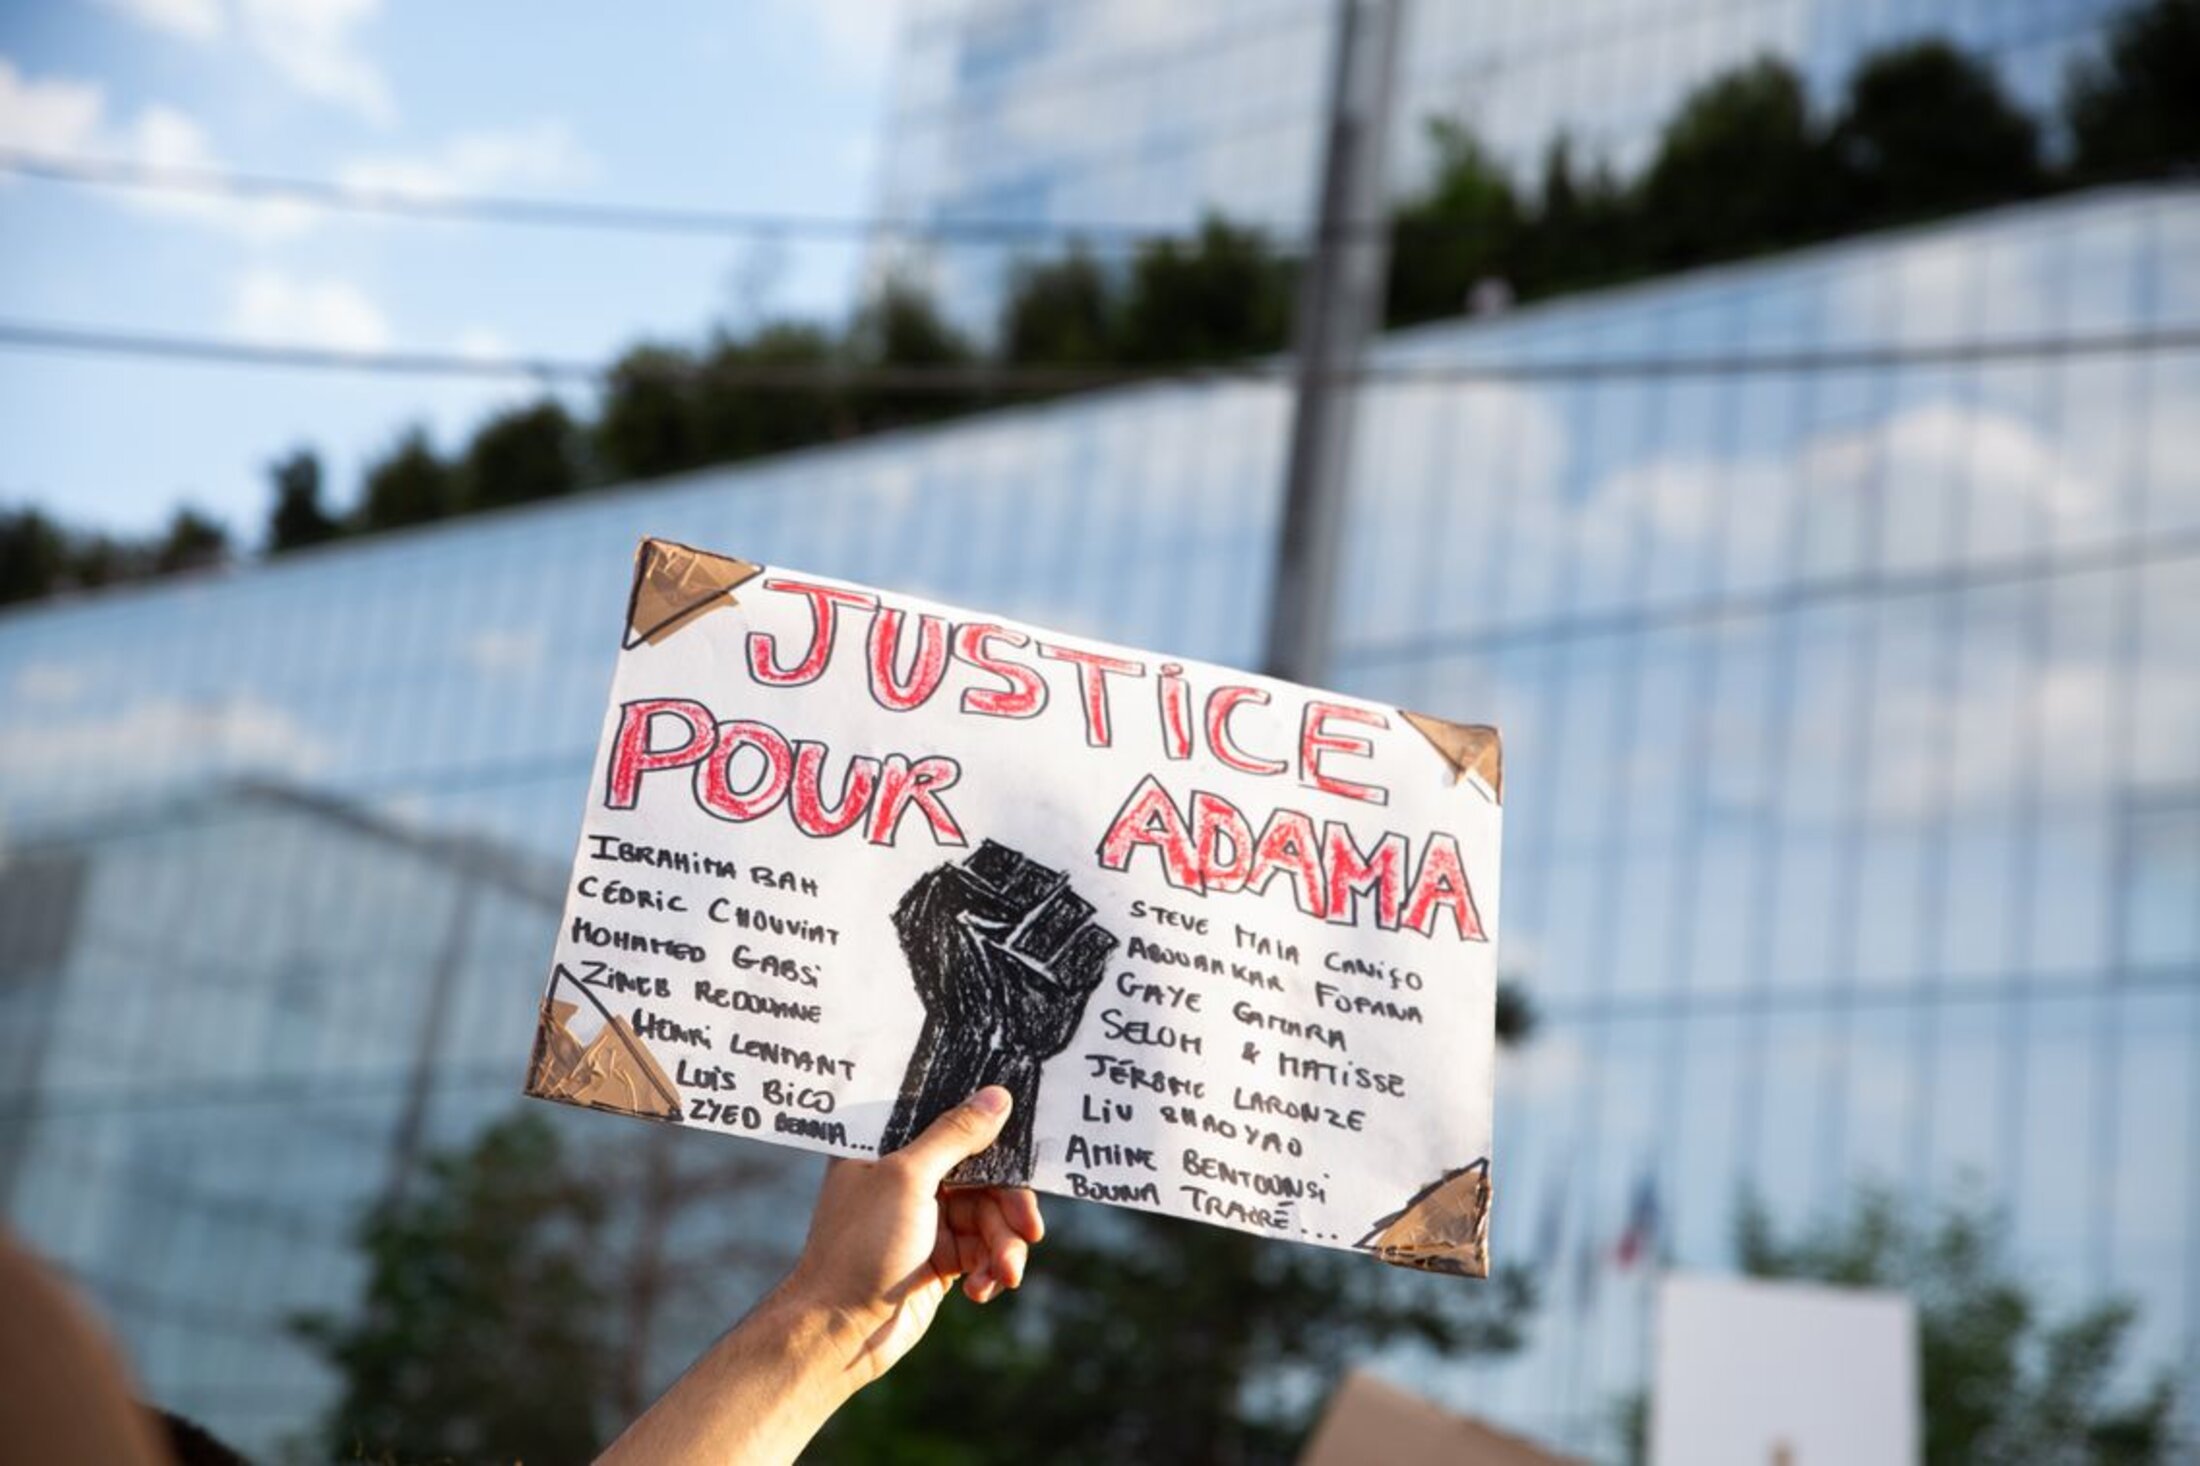 JUSTiCE
POUR ADAMA
IBRAHiMA BAH
CÉDRiC CHOUViAT
MOHAMED GABSi
ZiNEB REDOUANE
HENRi LENFANT
LUiS BiCO
ZYED BENNA...
STEVE MAIA CANiÇO
ABOUBAKAR FOFANA
GAYE CAMARA
SELOM & MATiSSE
JÉRÔME LARONZE
LiU SHAOYAO
AMiNE BENTOUNSi
BOUNA TRAORÉ...